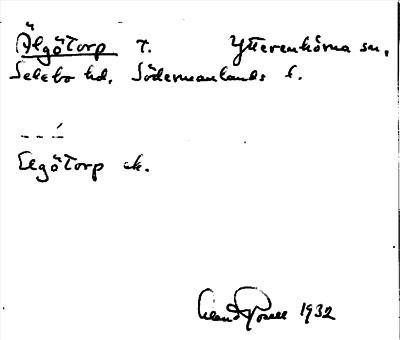 Älgötorp T. Ytterenhörna sn,
Selebo hd, Södermanlands l.
Elgötorp ek.
1932